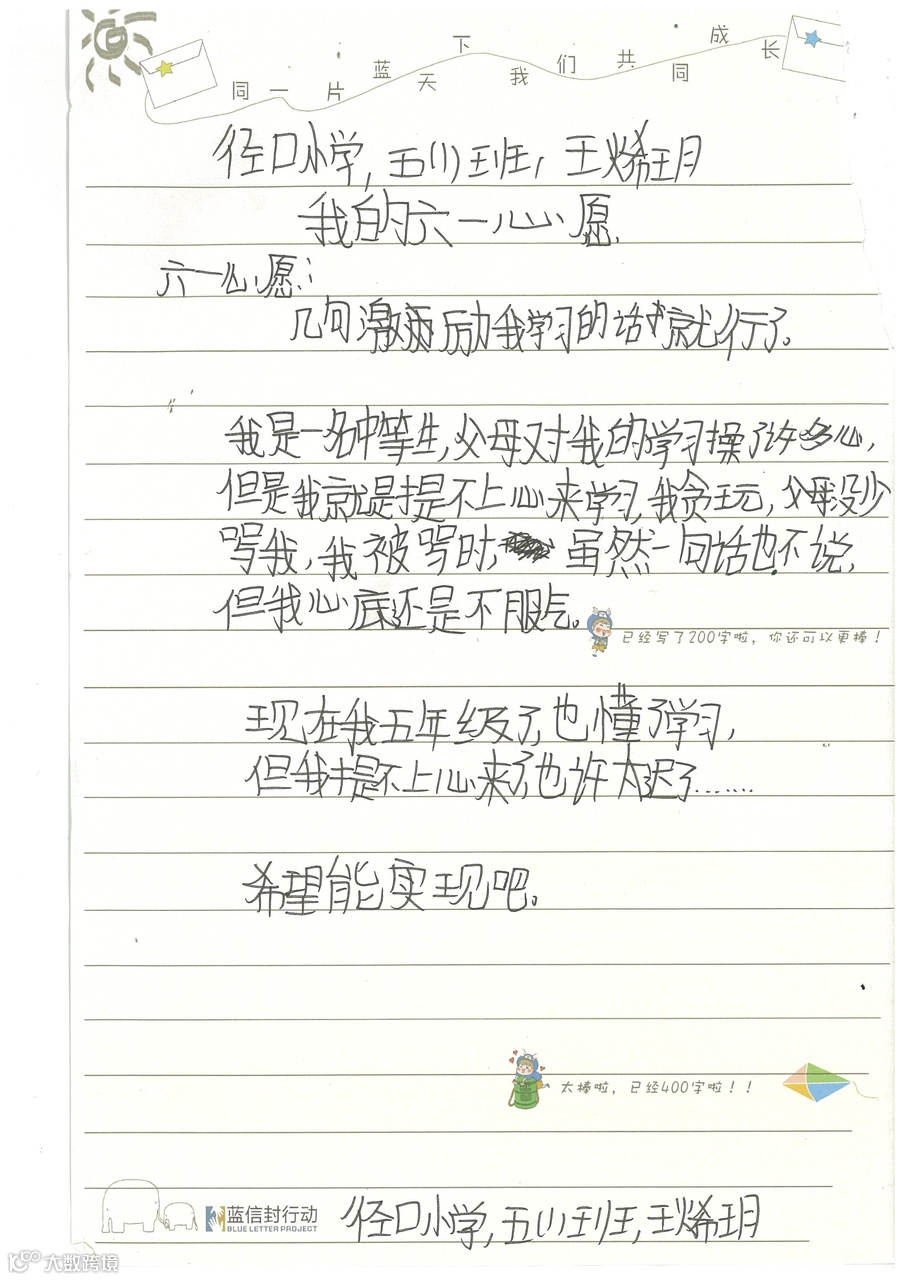 同一片蓝天下我们共同成长
径口小学,五(1)班,王烯玥
我的六一心愿.
六一心愿:
几句激励我学习的话就行了。
我是一名中等生,父母对我的学习操了许多心,
但是我就是提不上心来学习,我贪玩,父母没少
骂我,我被骂时,虽然一句话也不说,
但我心底还是不服气。
已经写了200字啦,你还可以更棒!
现在我五年级了,也懂了学习,
但我提不上心来了,也许太迟了……
希望能实现吧。
太棒啦,已经400字啦!!
蓝信封行动
BLUE LETTER PROJECT
径口小学,五(1)班,王烯玥
大数跨境